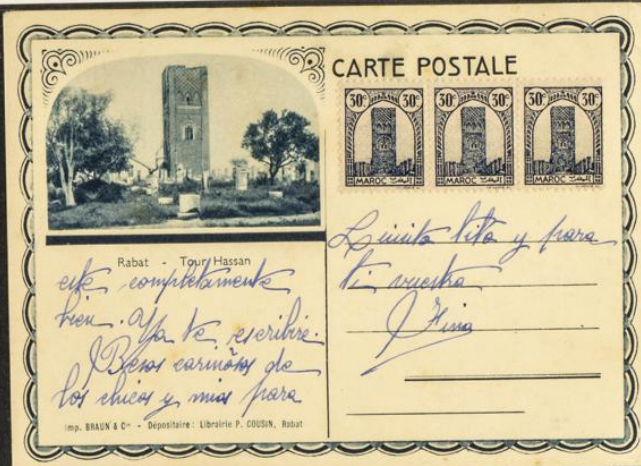 CARTE POSTALE
30c 30c 30c 30c 30c 30c
MAROC المغرب MAROC المغرب MAROC المغرب
Rabat - Tour Hassan
este completamente
bien. Ya te escribire.
Besos cariñosos de
los chicos y mios para
Imp. BRAUN & Cie - Dépositaire: Librairie P. COUSIN, Rabat
tita y para
ti vuestra